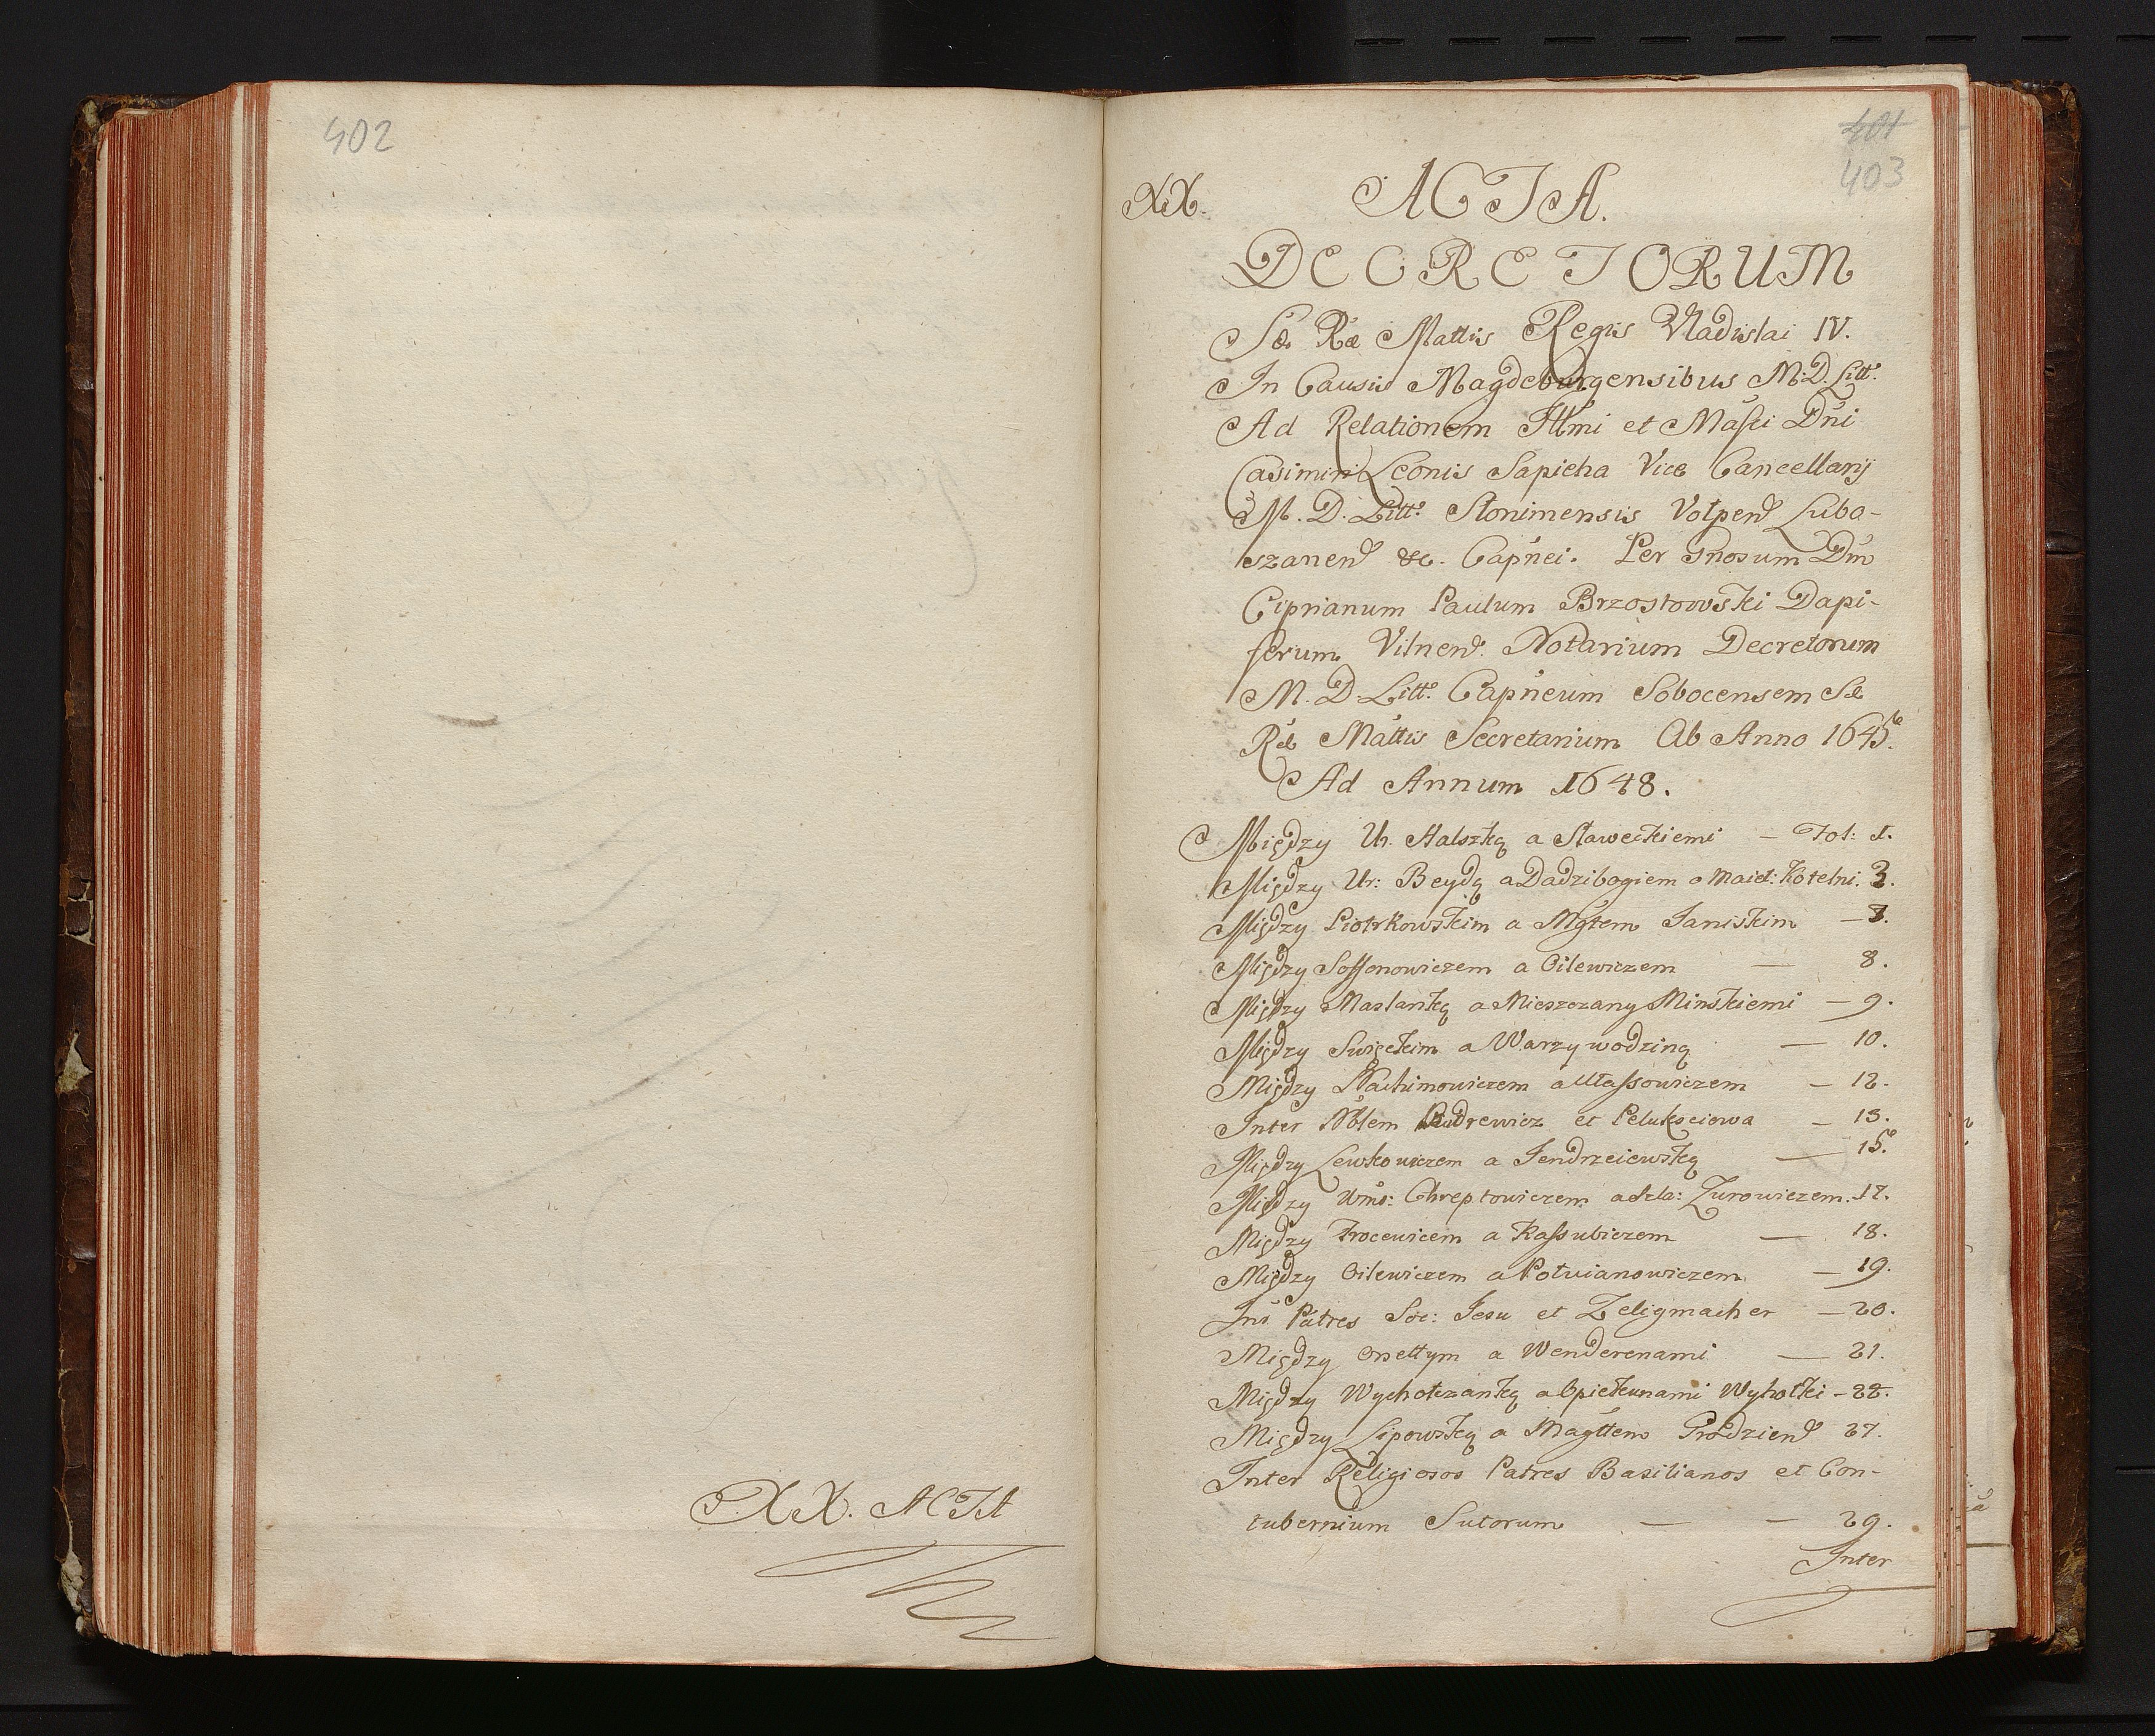 402
XX. ACTA
401
403
XX. ACTA.
DECRETORUM
Sæ Ræ Mattis Regis Vladislai IV.
In Causis Magdeburgensibus M. D. Litt.
Ad Relationem Illmi et Mafci Dni
Casimiri Leonis Sapieha Vice Cancellarij
M. D. Litt. Slonimensis Volpen Lubo-
szanen &c. Capnei. Per Gnosum Dm
Ciprianum Paulum Brzostowski Dapi-
ferum Vilnen. Notarium Decretorum
M. D. Litt. Capneum Sobocensem Sæ
Ræ Mattis Secretarium Ab Anno 1645.
Ad Annum 1648.
Między Ur. Halszką a Staweckiemi — Fol: 1.
Między Ur: Beydą a Dadzibogiem o Maiet: Kotelni. 3.
Między Piotrkowskim a Mgtem Janiskim —
Między Soffonowiczem a Oilewiczem — 8.
Między Maslanką a Mieszczany Minskiemi — 9.
Między Swięckim a Warzywodziną — 10.
Między Nachimowiczem a — 12.
Inter Nblem et Pelukściowa — 13.
Między Lewkowiczem a Jendrzeiewską — 15.
Między Wmo: Chreptowiczem a Szla: Zurowiczem. 17.
Między Trocewicem a Kaſsubiczem — 18.
Między Oilewiczem a Potuianowiczem — 19.
Int Patres Soc: Jesu et Zeligmacher — 20.
Między Orsettym a Wenderenami — 21.
Między Wychotczanką a Opiekunami Wyhotki — 22.
Między Lipowską a Magttem Grodzien 27.
Inter Religiosos Patres Basilianos et Con-
tubernium Sutorum — — 29.
Inter